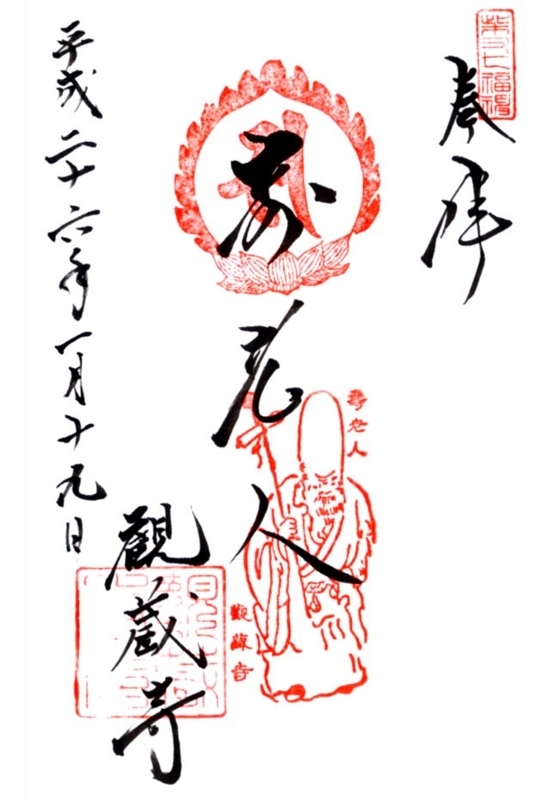 奉拝
柴又七福神
寿老人
寿老人
観蔵寺
觀蔵寺
平成二十六年一月十九日